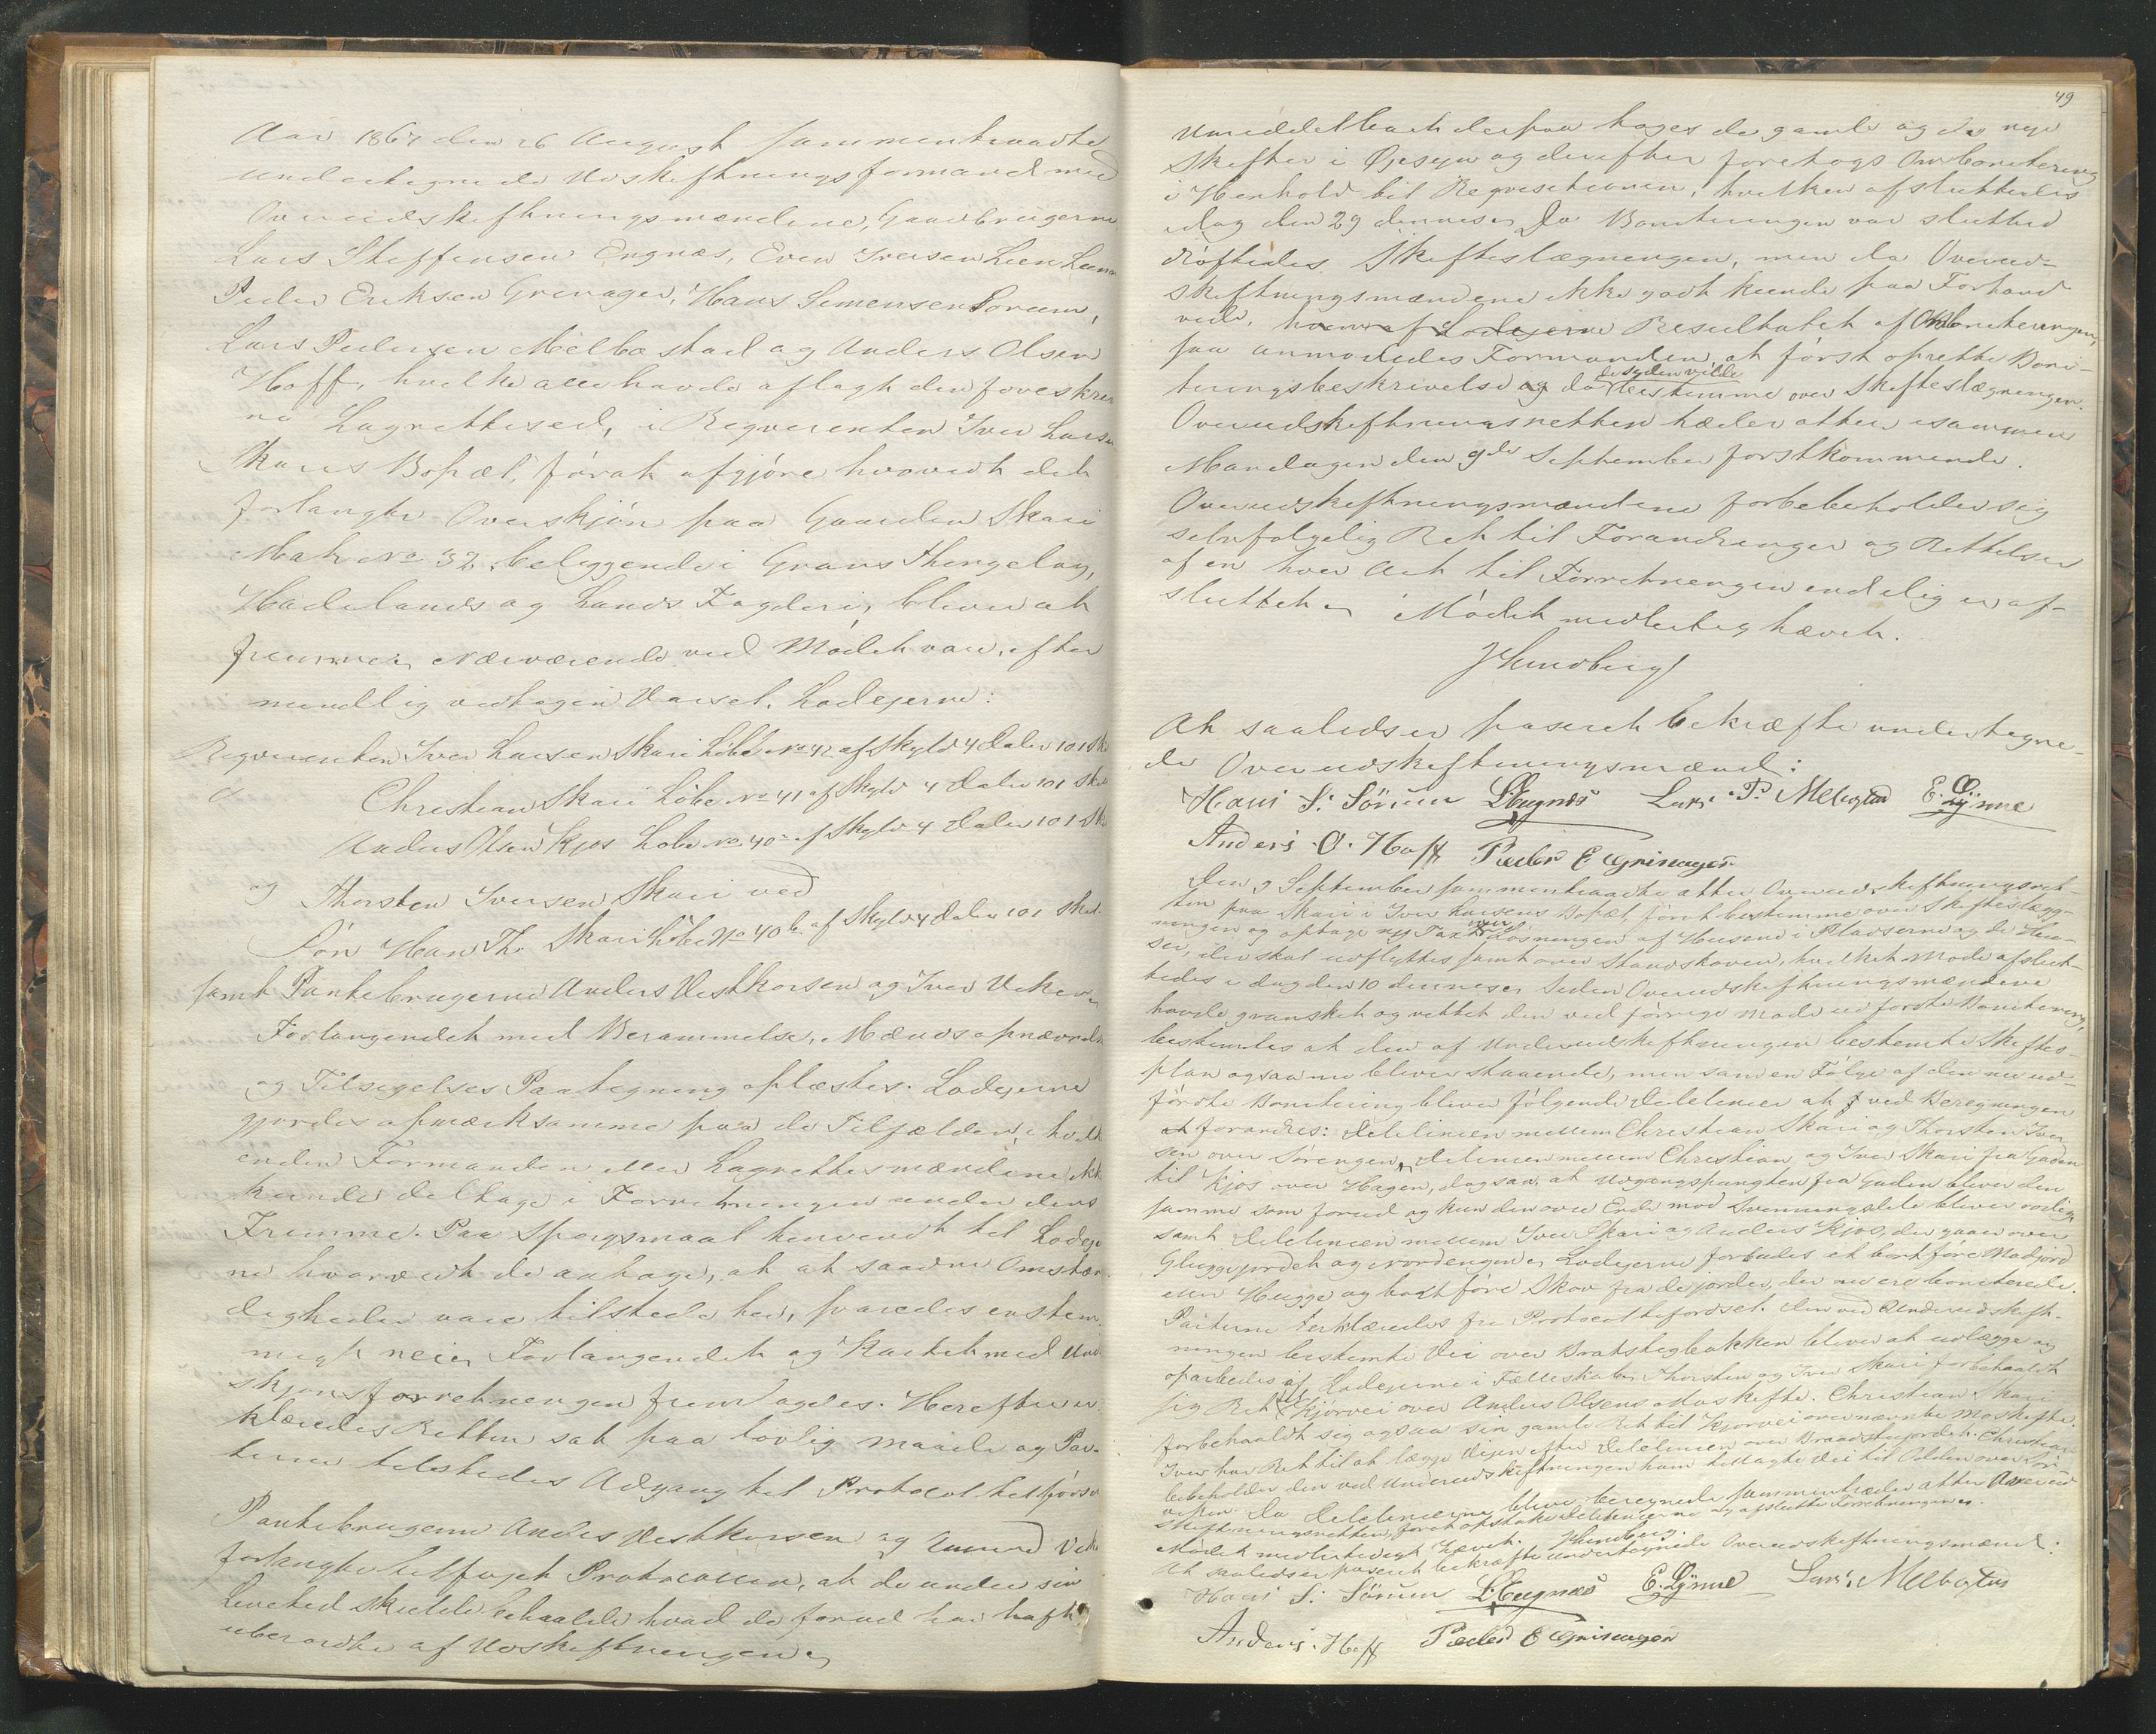 Aar 1867 den 26 August sammentraadte
undertegnede Udskiftningsformand med
Overudskiftningsmændene, Gaardbrugerne
Lars Steffensen Engnæs, Even Iversen Lien
Peder Eriksen Grinager, Hans Simensen Sorum,
Lars Pedersen Melbostad og Anders Olsen
Hoff, hvilke alle havde aflagt den foreskrev
ne Lagrettesed, i Reqvirenten Iver Larsen
Skaris Bopæl, forat afgjøre hvorvidt det
forlangte Overskjøn paa Gaarden Skari
Mat No 32, beliggende i Grans Thinglag,
Hadelands og Lands Fogderi, bliver at
fremme. Nærværende ved Mødet vare, efter
mundtlig vedtagen Varsel, Lodejerne:
Reqvirenten Iver Larsen Skari Løbe No 42 af Skyld 4 Daler 101 Sk
Christian Skari Løbe No 41 af Skyld 4 Daler 101 Sk
Anders Olsen Kjos Løbe No 40a af Skyld 4 Daler 101 Sk
og Thorsten Iversen Skari ved
Søn Hans Th. Skari Løbe No 40b af Skyld 4 Daler 101 Sk
samt Partebrugerne Anders Vestkorsen og Iver
Forlangendet med Berammelse, Mænds opnævnelse
og Tilsigelses Paategning oplæstes. Lodejerne
gjordes opmærksomme paa de Tilfælder, i hvilke
enten Formanden eller Lagrettesmændene ikke
kunde deltage i Forretningen under dens
Fremme. Paa Spørgsmaal henvendt til Lodejer
ne hvorvidt de antage, at at saadne Omstæn
digheder vare tilstede her, svaredes enstem
migt nei. Forlangendet og Kartet med Und
skjønsforretningen fremlagdes. Herefter er
klæredes Retten sat paa lovlig Maade og Par
terne tilstedes Adgang til Protocol tilførsel
Partebrugerne Anders Vestkorsen og
forlangte tilføjet Protocollen, at de under sin
Levetid skulde beholde hvad de forud har haft
uberørte af Udskiftningen.
49
Umiddelbart derpaa toges de gamle og de nye
Skifter i Øjesyn og derefter foretogs Ombonitering
i Henhold til Reqvisitionen, hvilken afsluttedes
idag den 29 dennes. Da Boniteringen var sluttet
drøftedes Skifteslægningen, men da Overud-
skiftningsmændene ikke godt kunde paa Forhaand
vide, hvem af Lodejerne Resultatet af Omboniteringen,
saa anmodedes Formanden, at først oprette Boni-
teringsbeskrivelse og da desuden vilde bestemme over Skifteslægningen.
Overudskiftningsretten træder atter isammen
Mandagen den 9de September førstkommende.
Overudskiftningsmændene forbeholder sig
selvfølgelig Ret til Forandringer og Rettelser
af en hver Art til Forretningen endelig er af-
sluttet. Mødet midlertidig hævet.
JSundberg
At saaledes er passeret bekræfte undertegne-
de Overudskiftningsmænd:
Hans S. Sörum LSEngnæs Lars P. Melbostad
Anders O. Hoff Peder E Grinager
Den 9 September sammentraadte atter Overudskiftningsret-
ten paa Skari i Iver Larsens Bopæl, forat bestemme over Skifteslæg-
ningen og optage ny Taxt over Løsningen af Husene i Pladserne og de Hu-
ser, der skal udflyttes samt over Standskoven, hvilket Møde afslut-
tedes i dag den 10 dennes. Siden Overudskiftningsmændene
havde gransket og rettet den ved forrige Møde udførte Bonitering,
bestemtes at den af Underudskiftningen bestemte Skiftes-
plan ogsaa nu bliver staaende, men som en Følge af den nu ud-
førte Bonitering bliver følgende Delelinier at ved Beregningen
at forandres: Delelinien mellem Christian Skari og Thorsten Iver-
sen over Sørengen, Delelinien mellem Christian og Iver Skari fra Gaden
til Kjos over Hagen, dog saa, at Udgangspungten fra Gaden bliver den
samme som forud og kun den øvre Ende mod bliver
samt Delelinien mellem Iver Skari og Anders Kjos, der gaar over
Gluggejordet og Nordengen. Lodejerne forbudes at bortføre Madjord
eller Hugge og bortføre Skov fra de jorder, der nu ere boniterede.
Parterne erklæredes fri Protocoltilførsel. Den ved Underudskift-
ningen bestemte Vei over Bratstigbakken bliver at udlægge og
oparbeides af Lodejerne i Fællesskab. Thorsten og Iver Skari forbeholdt
sig Ret til Kjørvei over Anders Olsens Moskifte. Christian Skari
forbeholdt sig ogsaa sin gamle Ret til Kjørvei over nævnte Moskifte.
Iver har Ret til at lægge Vejen efter Delelinien over Braadstujordet. Christian
beholder den ved Underudskiftningen ham tillagte Vei til Odden over
vejen. Da Delelinierne blive beregnede sammentræder atter Overud
skiftningsretten, forat opstikke Delelinierne og afslutte Forretningen.
Mødet midlertidigt hævet. JSundberg.
At saaledes er passeret bekræfte undertegnede Overudskiftningsmænd:
Hans S. Sörum LSEngnæs Lars Melbostad
Anders Hoff Peder E Grinager